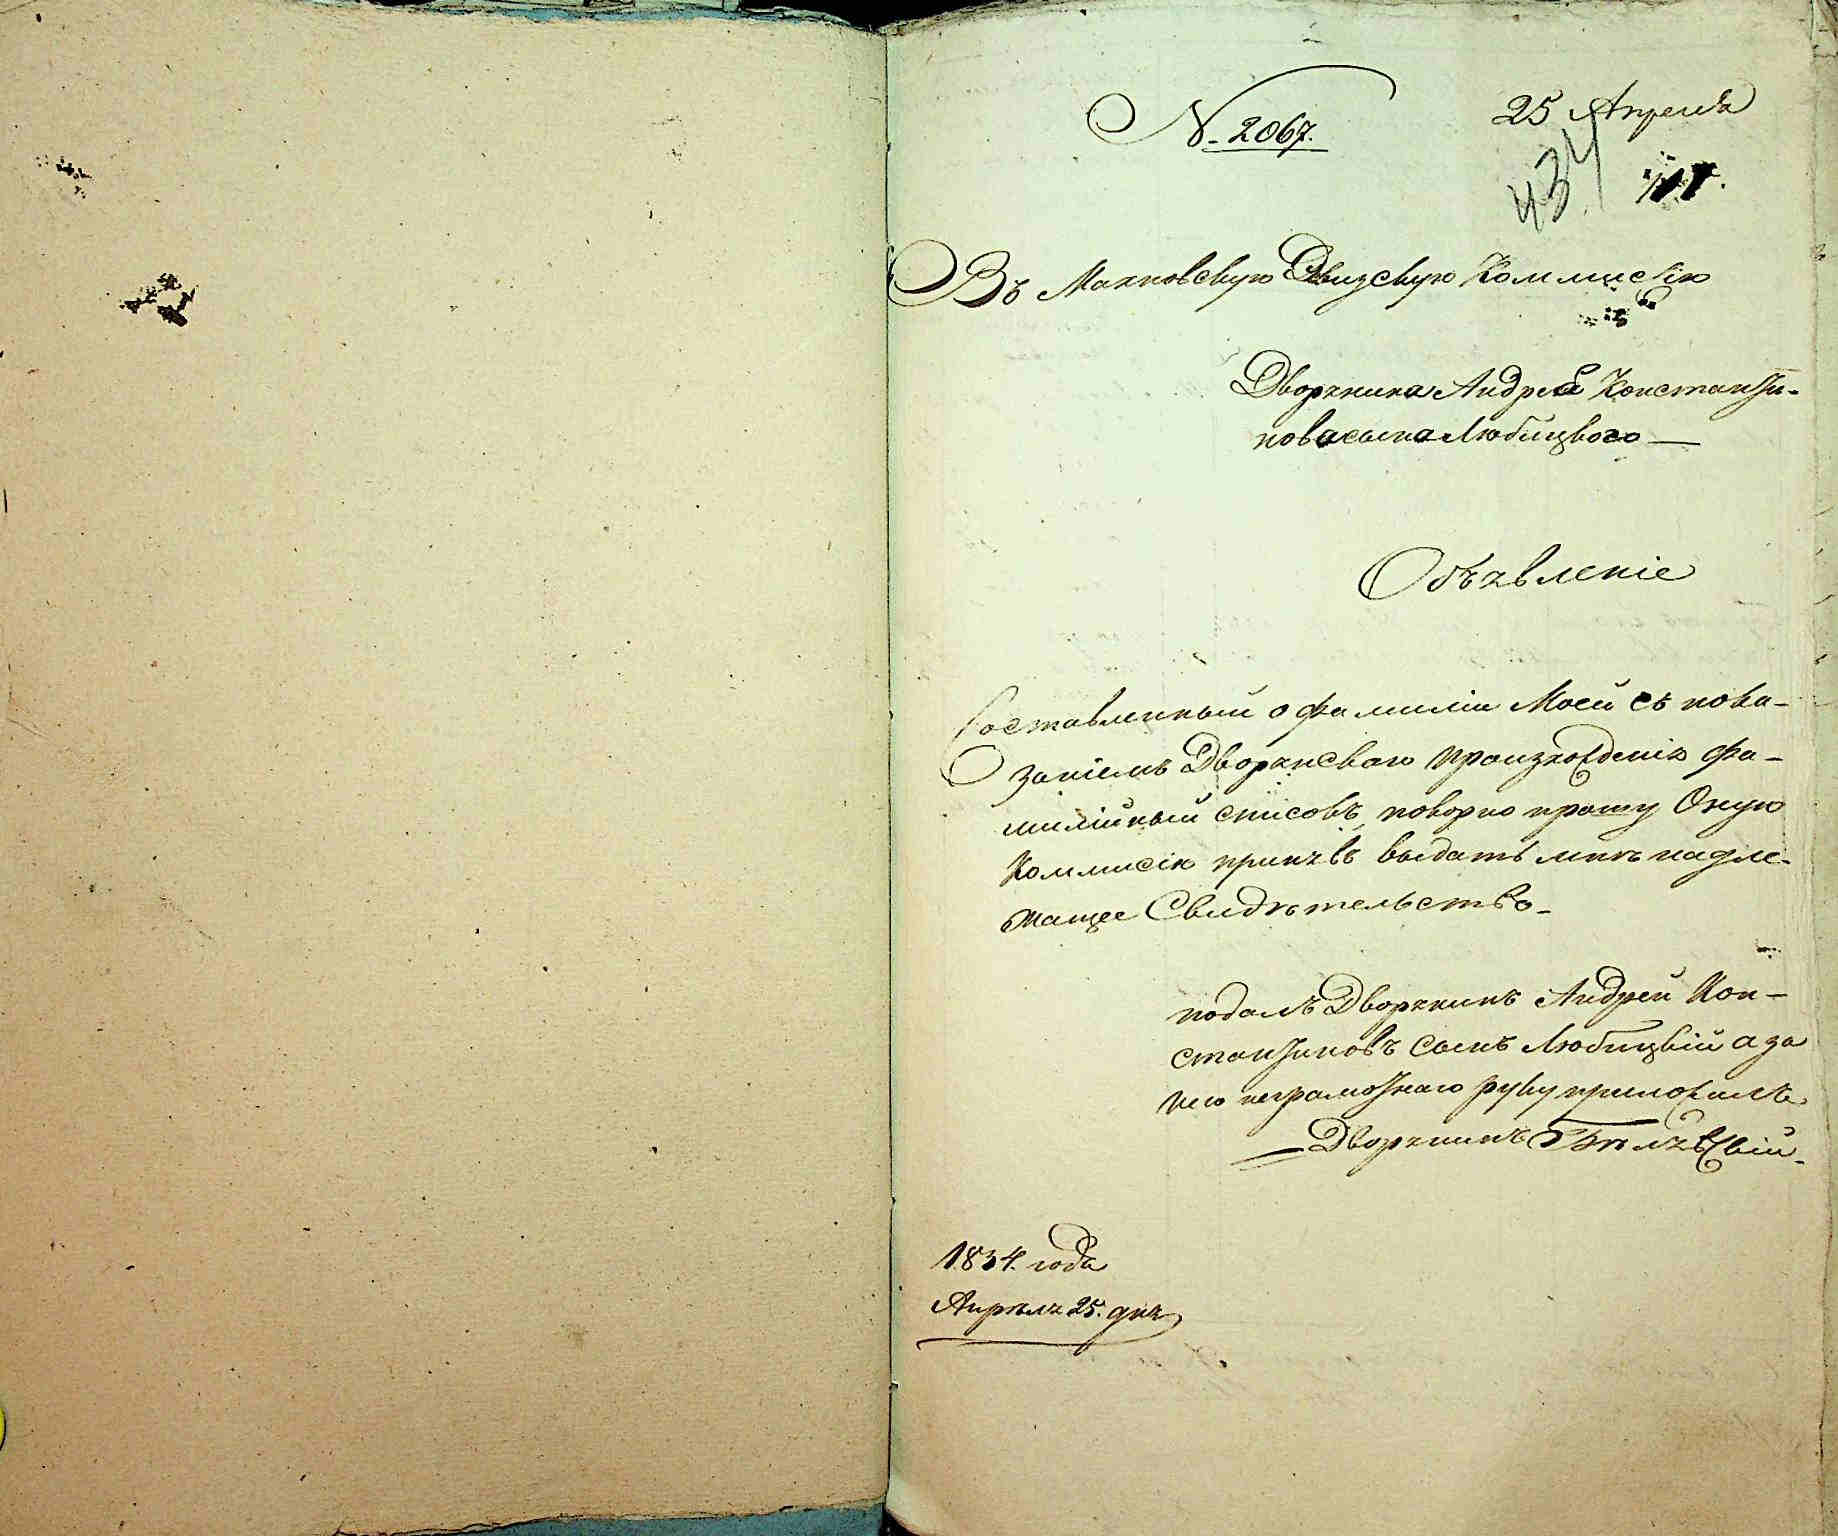 N. 2067.
25 Апреля
434
Въ Махновскую Ревизскую Коммисію
Дворянина Андрея Константи-
нова сына Любицкого
Объявленіе
Составленный о фамиліи Моей съ пока-
заніемъ Дворянскаго произхожденія фа-
милійный списокъ покорно прошу Оную
Коммисію принявъ выдать мнѣ надле-
жащее Свидѣтельство
подалъ Дворянинъ Андрей Кон-
стантиновъ сынъ Любицкій а за
него неграмотнаго руку приложилъ
Дворянинъ
1834. года
Апрѣля 25. дня